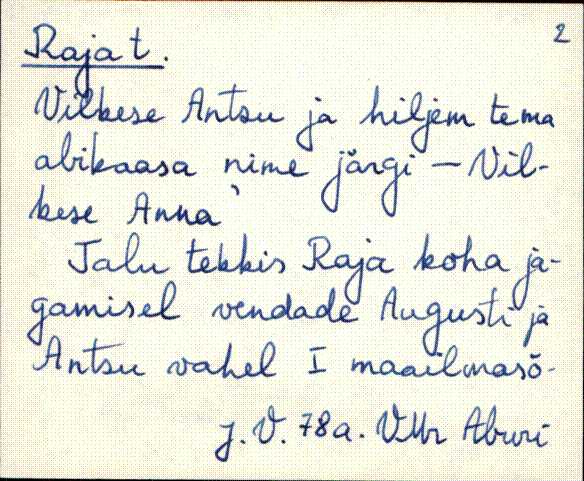 2
Raja t.
Vilkese Antsu ja hiljem tema
abikaasa nime järgi – Vil-
kese Anna'
Talu tekkis Raja koha ja-
gamisel vendade Augusti ja
Antsu vahel I maailmasõ-
J. V. 78a. VMr Aburi